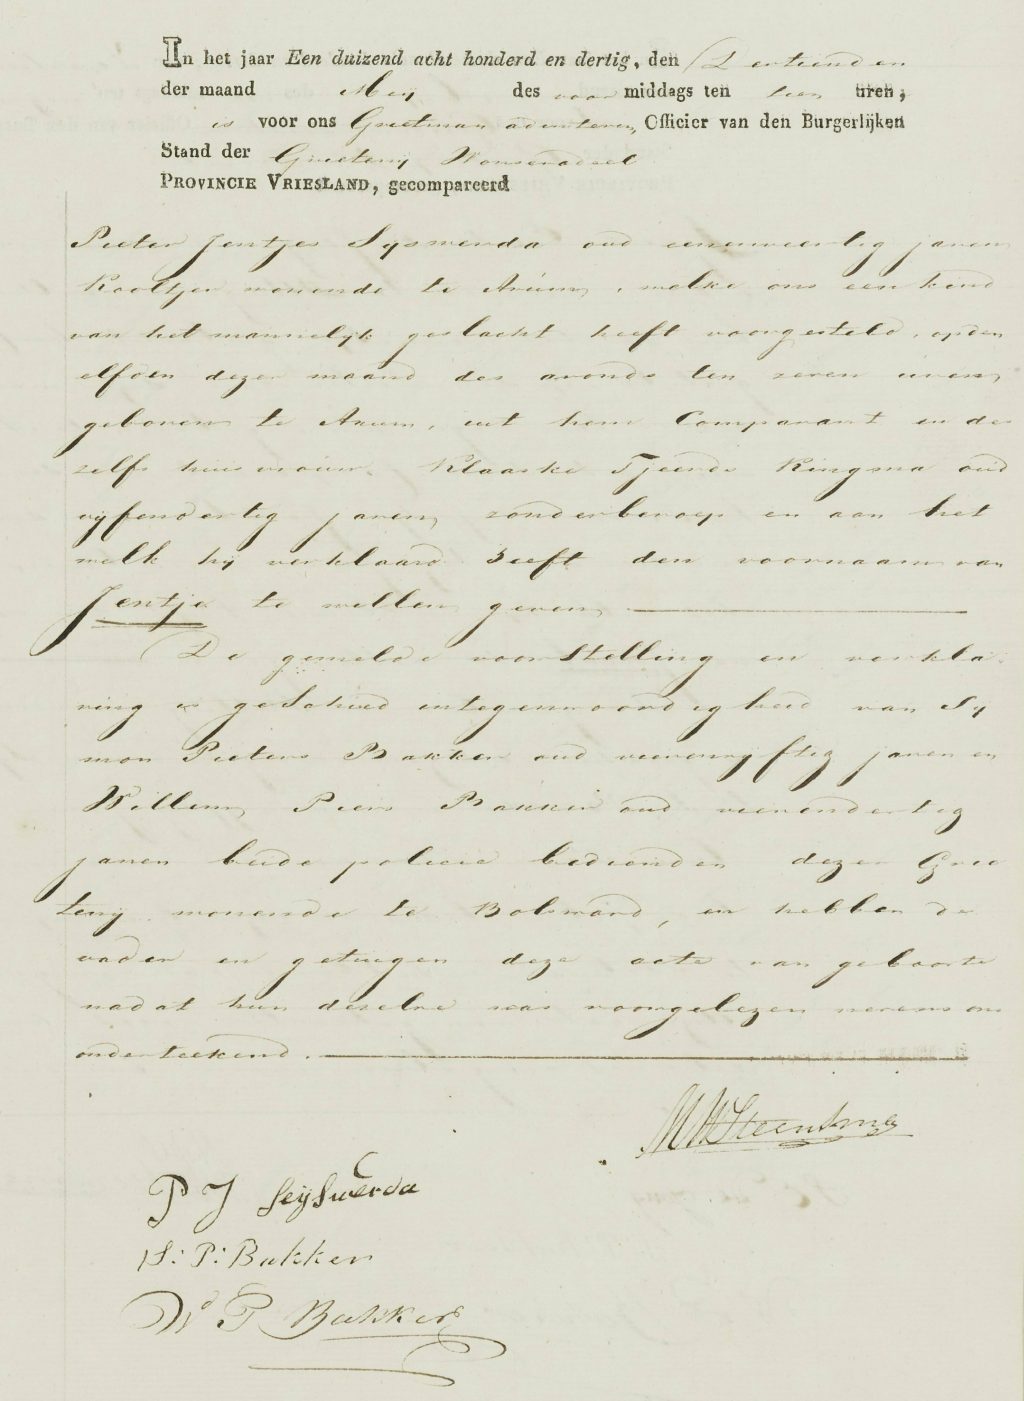 In het jaar Een duizend acht honderd en dertig, den Dertienden
der maand Mey des voor middags ten tien uren,
is voor ons Grietman Officier van den Burgerlijken
Stand der Grieteny Wonseradeel
PROVINCIE VRIESLAND, gecompareerd
Pieter Jentjes Syswerda oud eenenveertig jaren
Kooltjer wonende te Arum, welke ons een kind
van het mannelijk geslacht heeft voorgesteld, op den
elfden dezer maand des avonds ten zeven uren,
geboren te Arum, uit hem Comparant en des
zelfs huisvrouw Klaaske Tjeerds Ringsma oud
vyfendertig jaren, zonder beroep en aan het
welk hy verklaard heeft den voornaam van
Jentje te willen geven
De gemelde voorstelling en verkla
ring is geschied in tegenwoordigheid van Sy
mon Pieters Bakker oud vierenvyftig jaren en
Willem Piers Bakker oud vierendertig
jaren beide policie bedienden dezer Grie
teny wonende te Bolsward, en hebben de
vader en getuigen deze acte van geboorte
nadat hun dezelve was voorgelezen nevens ons
onderteekend.
Steensma
P J Seijswerda
S: P: Bakker
Wd P Bakker